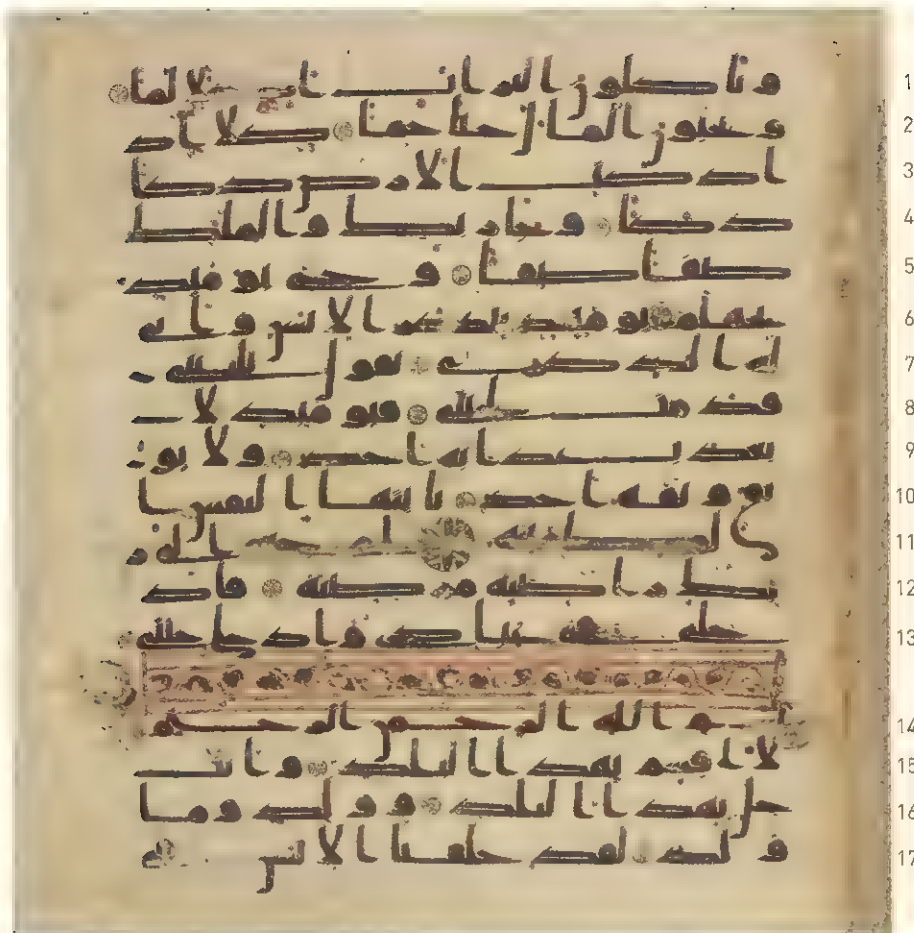 1 وتاكلون التراث اكلا لما
2 وتحبون المال حبا جما كلا اذ
3 ا دكت الارض دكا
4 دكا وجا ربك والملك
5 صفا صفا وجاى يومئذ
6 بجهنم يومئذ يتذكر الانسن وانى
7 له الذكرى يقول يليتنى
8 قدمت لحياتى فيومئذ لا
9 يعذب عذابه احد ولا يو
10 ثق وثاقه احد يايتها النفس ا
11 لمطمئنه ارجعى الى ر
12 بك راضيه مرضيه فاد
13 خلى فى عبدى وادخلى جنتى
14 بسم الله الرحمن الرحيم
15 لا اقسم بهذا البلد وانت
16 حل بهذا البلد ووالد وما
17 ولد لقد خلقنا الانسن فى